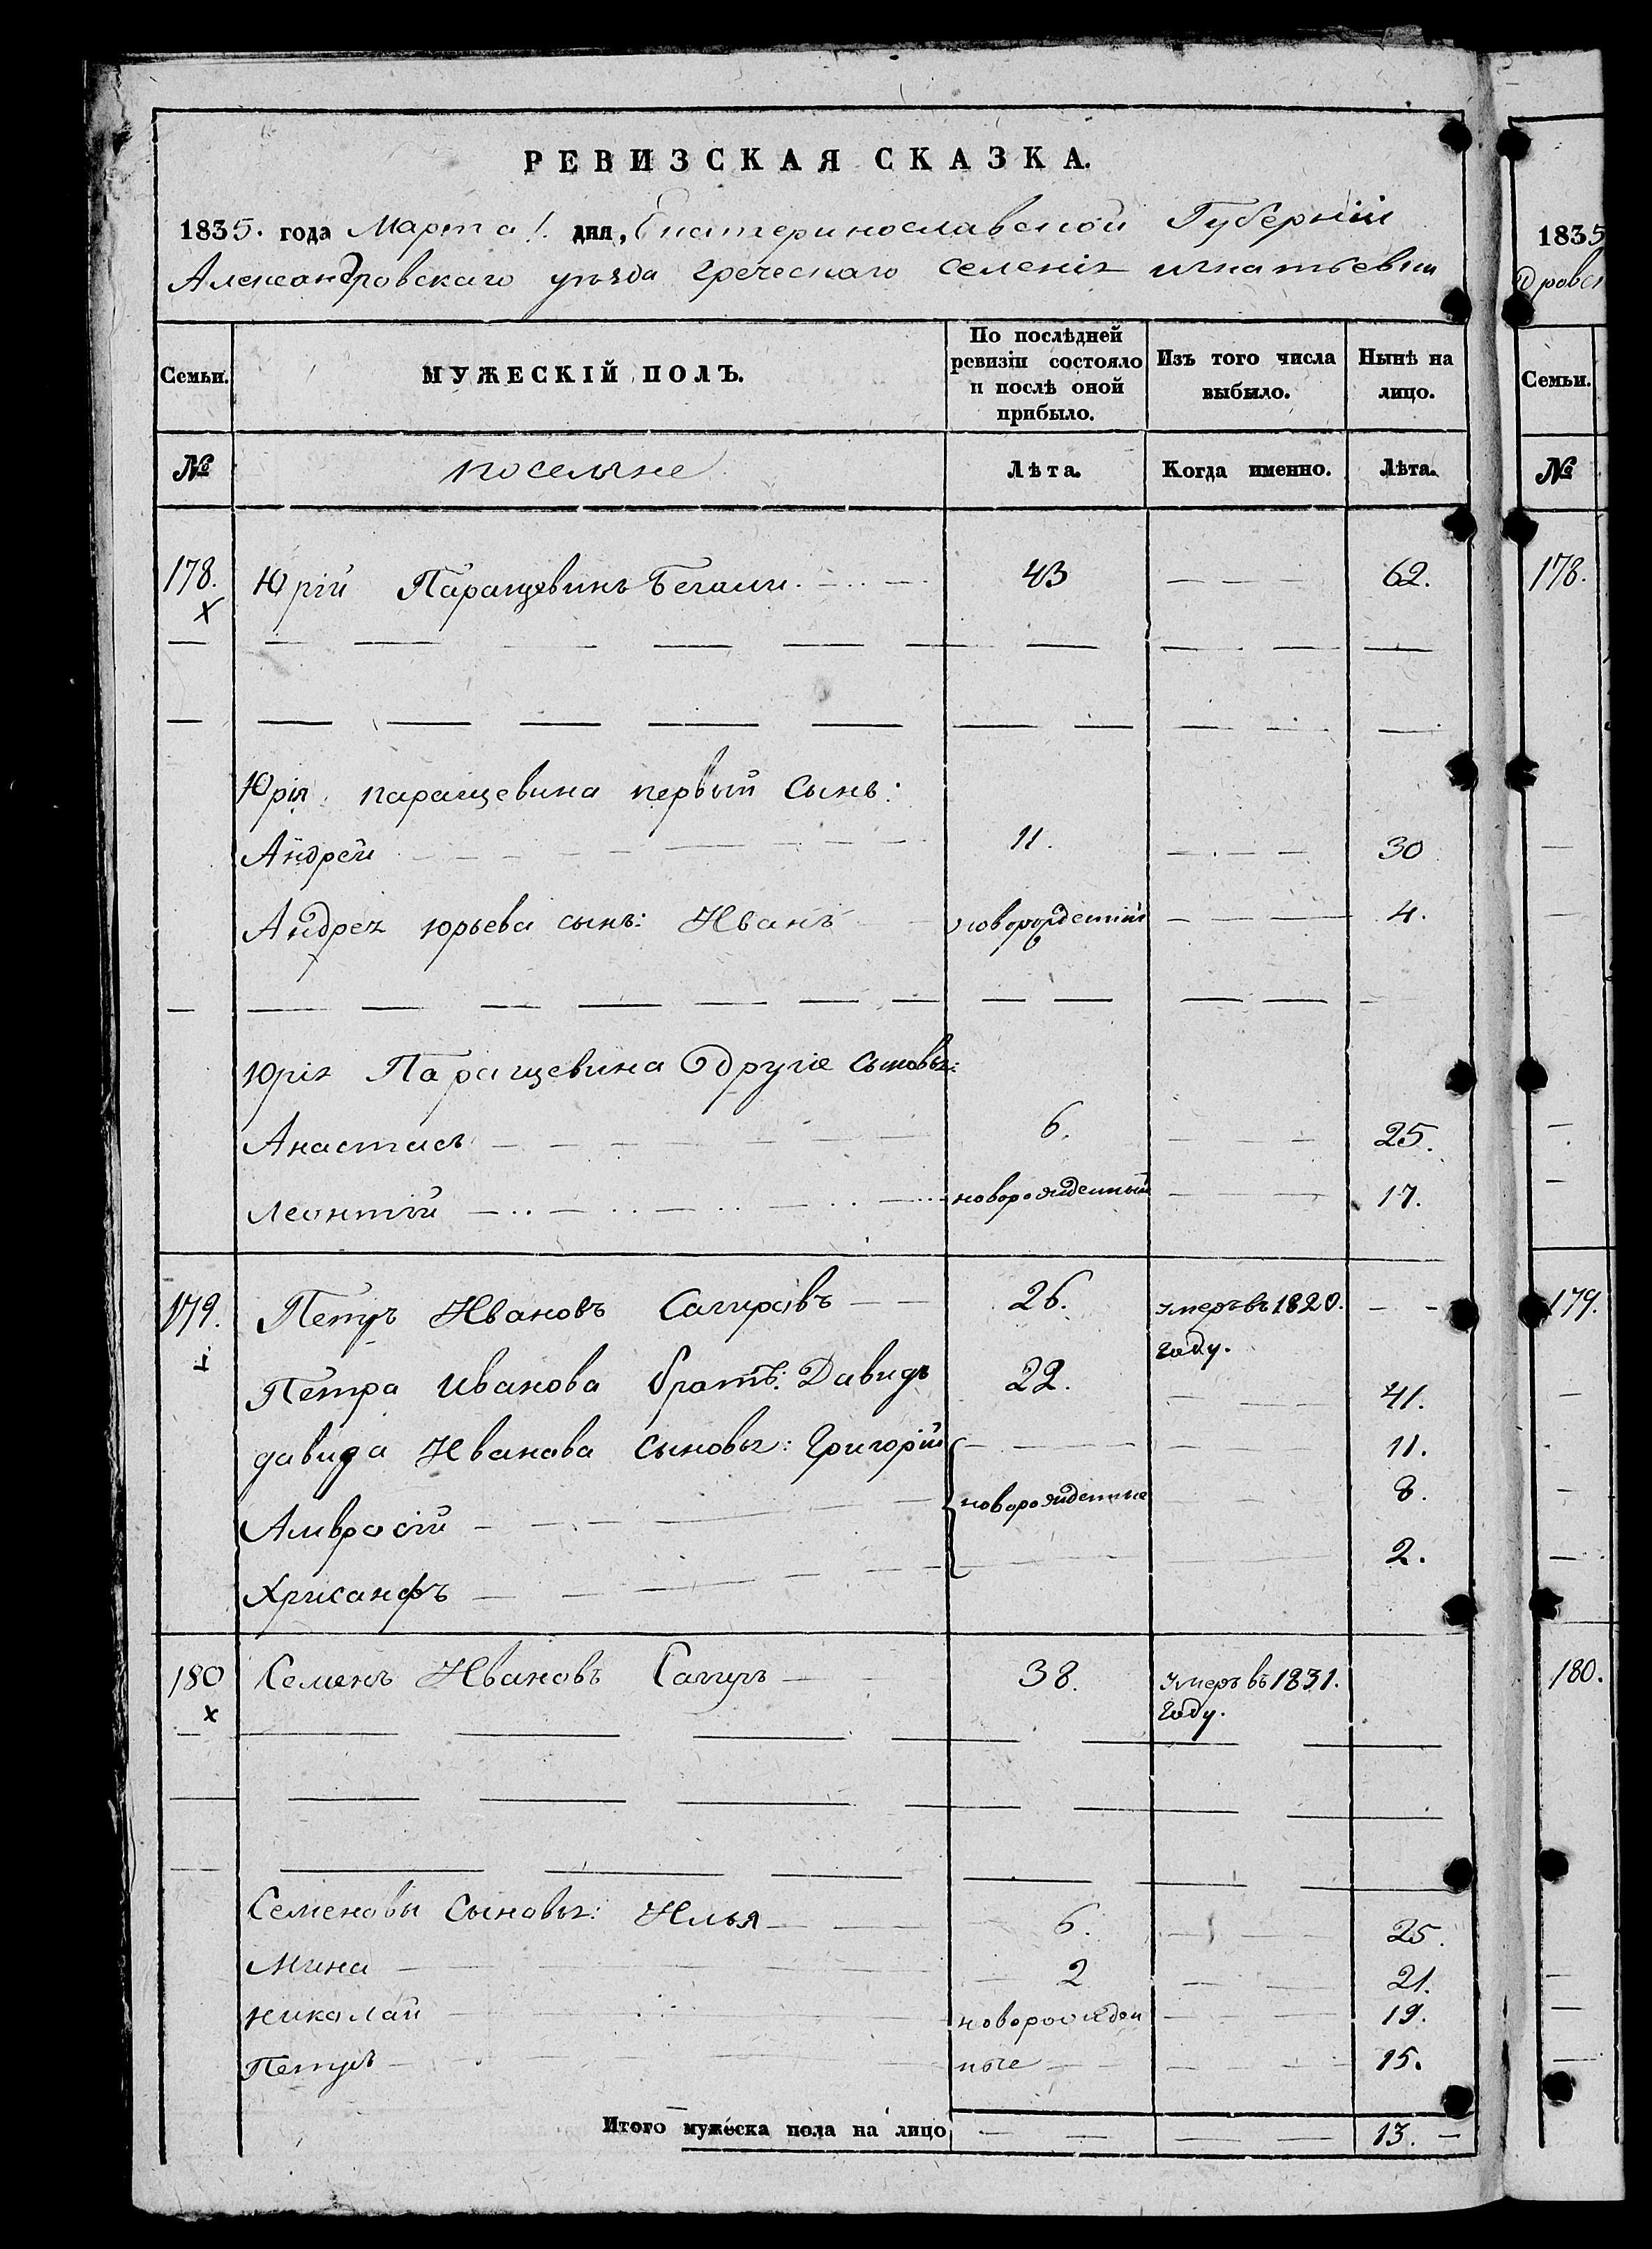 РЕВИЗСКАЯ СКАЗКА.
1835. года Марта 1. дня, Екатеринославской Губерніи
Александровскаго уѣзда греческаго селенія игнатьевки
Семьи. МУЖЕСКІЙ ПОЛЪ. По послѣдней ревизіи состояло и послѣ оной прибыло. Изъ того числа выбыло. Нынѣ на лицо.
№ поселяне Лѣта. Когда именно. Лѣта.
178. Юрій Паращевинъ 43 62.
х
Юрія паращевина первый сынъ:
Андрей 11. 30
Андрея юрьева сынъ: Иванъ новорожденный 4.
Юрія Паращевина другіе сыновья:
Анастасъ 6. 25.
Леонтій новорожденный 17.
179. Петръ Ивановъ 26. умеръ въ 1820. году.
Петра Иванова братъ: Давидъ 22. 41.
давида Иванова сыновья: Григорій 11.
Амвросій новорожденные 8.
Хрисанфъ 2.
180 Семенъ Ивановъ 38. умеръ въ 1831. году.
х
Семеновы сыновья: Илья 6. 25.
Мина 2 21.
николай новорожден 19.
Петръ ные 15.
Итого мужеска пола на лицо 13.
1835
Семьи.
№
178.
179.
180.